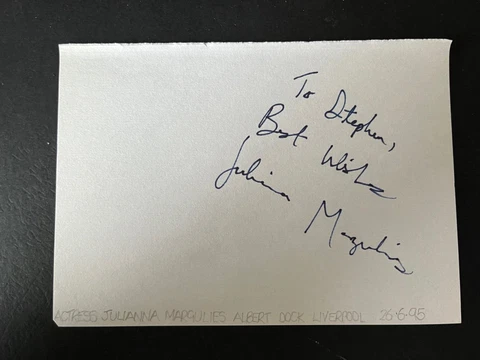 To Stephen,
Best Wishes
Juliana Margulies
ACTRESS, JULIANNA MARGULIES ALBERT DOCK LIVERPOOL 26-6-95